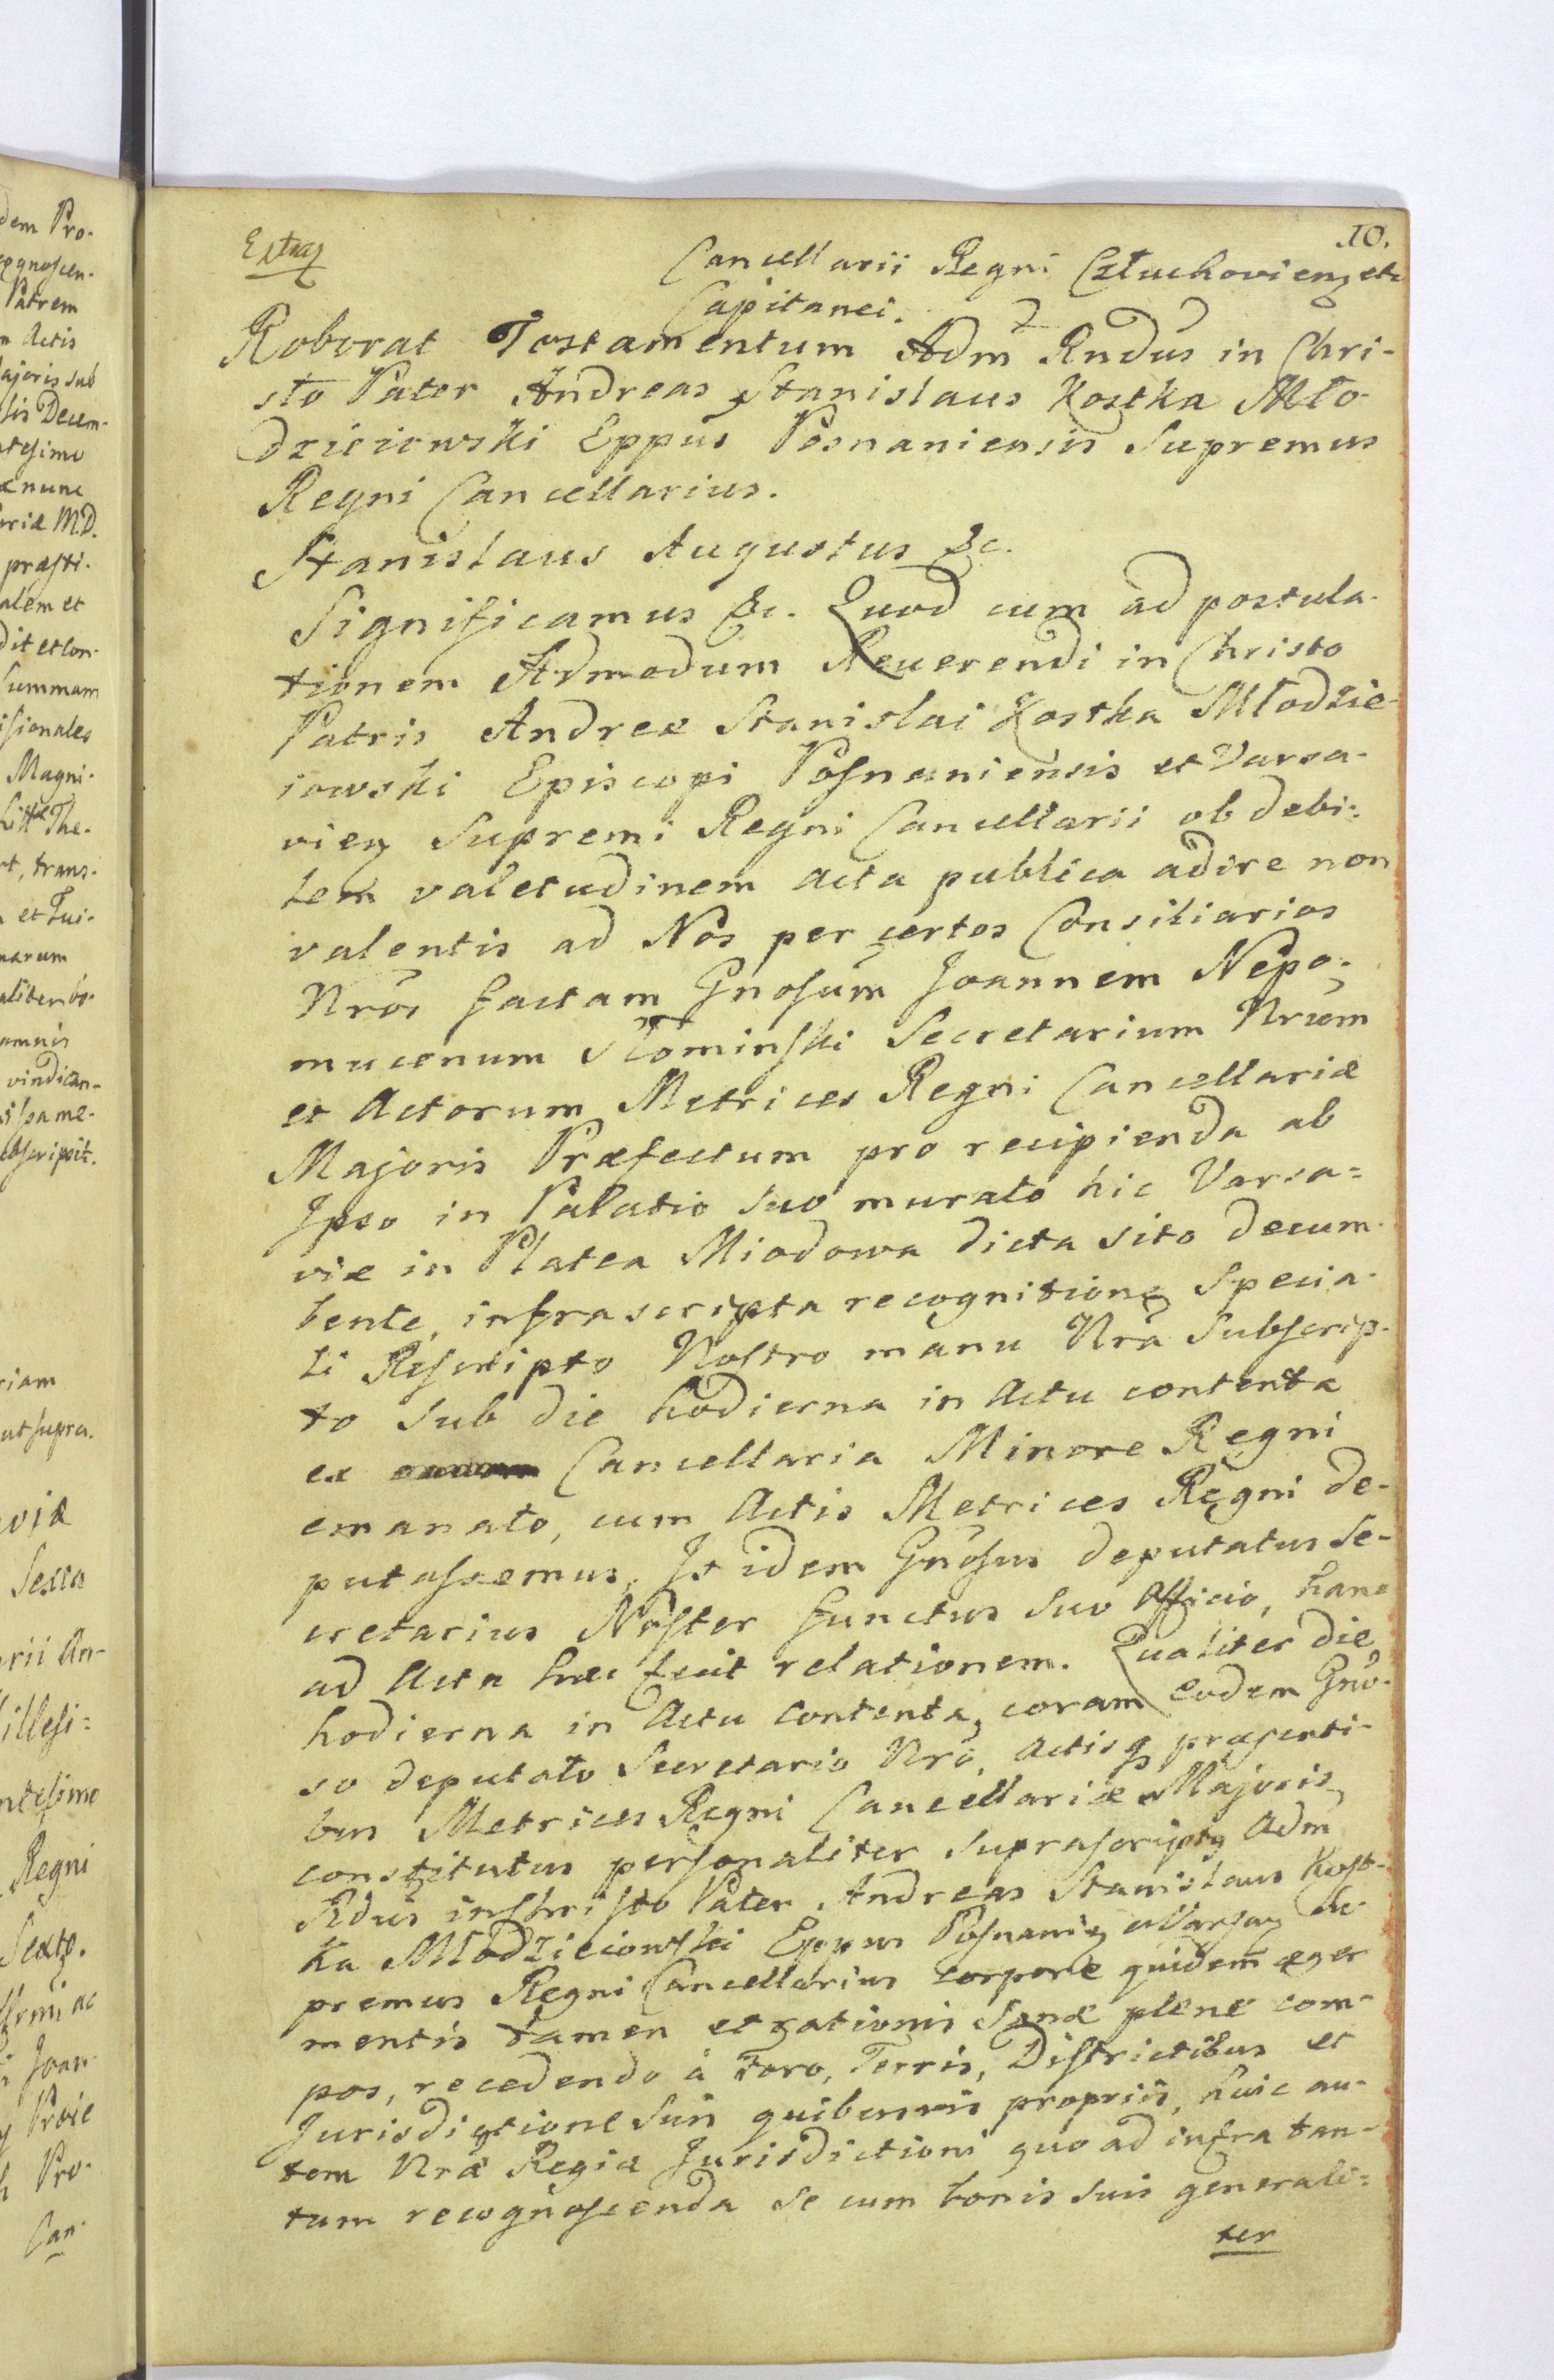 10.
Extra
Cancellarii Regni Człuchovien etc
Capitanei.
Roborat Testamentum Adm Rndus in Chri-
sto Pater Andreas Stanislaus Kostka Mło-
dzieiowski Eppus Posnaniensis Supremus
Regni Cancellarius.
Stanislaus Augustus &c.
Significamus &c. Quod cum ad postula-
tionem Admodum Reverendi in Christo
Patris Andreæ Stanislai Kostka Młodzie-
iowski Episcopi Posnaniensis et Varsa-
vien Supremi Regni Cancellarii ob debi-
lem valetudinem acta publica adire non
valentis ad Nos per certos Consiliarios
Nros factam Gnosum Joannem Nepo-
mucenum Słominski Secretarium Nrum
et Actorum Metrices Regni Cancellariæ
Majoris Præfectum pro recipienda ab
Ipso in Palatio suo murato hic Varsa=
viæ in Platea Miodowa dicta sito decum-
bente, infrascripta recognitione specia-
li Rescripto Nostro manu Nra Subscrip-
to sub die hodierna in Actu contenta
ex Cancellaria Minore Regni
emanato, cum Actis Metrices Regni de-
putassemus. Is idem Gnosus deputatus Se-
cretarius Noster functus suo Officio, hanc
ad Acta hæc fecit relationem. Qualiter die
hodierna in Actu contenta, coram eodem Gno-
so deputato Secretario Nro, Actisq præsenti-
bus Metrices Regni Cancellariæ Majoris
constitutus personaliter suprascriptus Adm
Rdus in Christo Pater Andreas Stanislaus Kost-
ka Młodzieiowski Eppus Posnanien Su-
premus Regni Cancellarius corpore quidem æger
mentis tamen et rationis sanæ plene com-
pos, recedendo à Foro, Terris, Districtibus et
Jurisdictione suis quibusvis propriis, huic au-
tem Nræ Regiæ Jurisdictioni quo ad infra tan-
tum recognoscenda se cum bonis suis generali=
ter